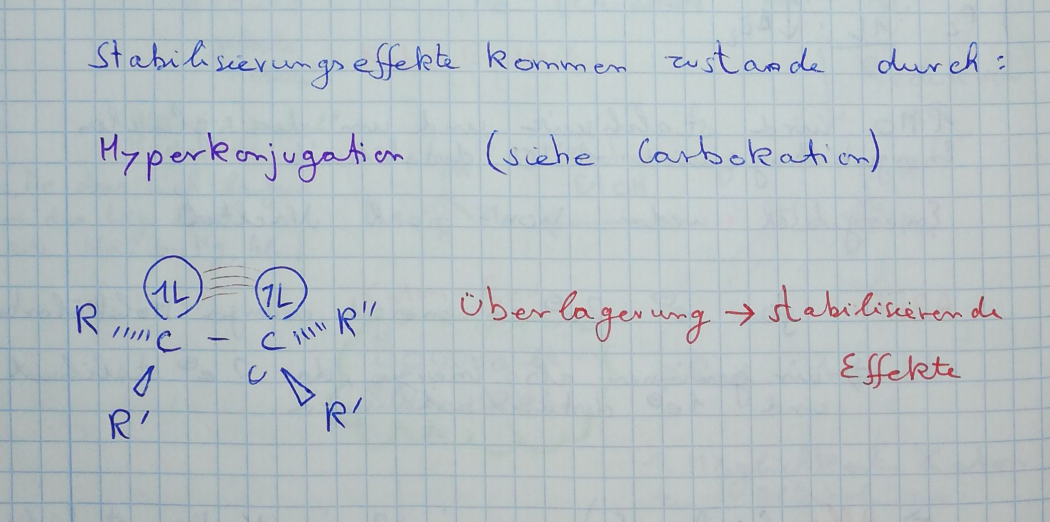 Stabilisierungseffekte kommen zustande durch:
Hyperkonjugation (siehe Carbokation)
1L 1L
R C - C R''
R' R'
Überlagerung → stabilisierende
Effekte